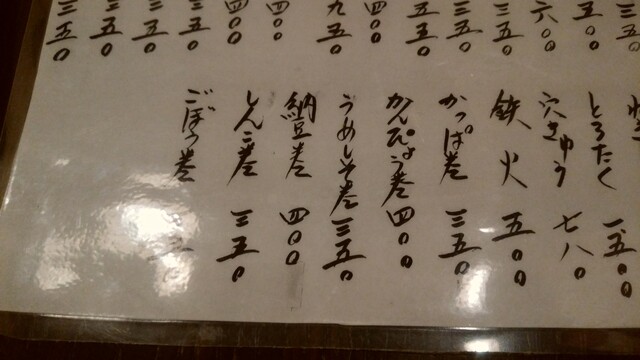 三五〇
五〇
六〇〇
三五〇
三五〇
五五〇
四〇〇
九五〇
四〇〇
四〇〇
三五〇
三五〇
三五〇
三五〇
とろたく 一、五〇〇
穴きゅう 七八〇
鉄火 五〇〇
かっぱ巻 三五〇
かんぴょう巻 四〇〇
うめしそ巻 三五〇
納豆巻 四〇〇
しんこ巻 三五〇
ごぼう巻